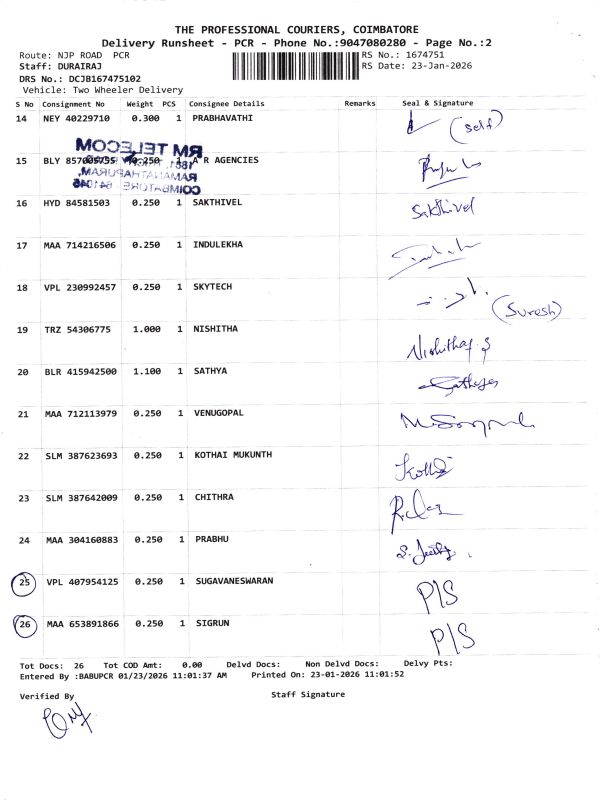 THE PROFESSIONAL COURIERS, COIMBATORE
Delivery Runsheet - PCR - Phone No.:9047080280 - Page No.:2
Route: NJP ROAD PCR
RS No.: 1674751
Staff: DURAIRAJ
RS Date: 23-Jan-2026
DRS No.: DCJB167475102
Vehicle: Two Wheeler Delivery
S No Consignment No Weight PCS Consignee Details Remarks Seal & Signature
14 NEY 40229710 0.300 1 PRABHAVATHI (self)
RM TELECOM
15 BLY 857005755 0.250 1 A R AGENCIES
RAMANATHAPURAM,
COIMBATORE
16 HYD 84581503 0.250 1 SAKTHIVEL Sakthivel
17 MAA 714216506 0.250 1 INDULEKHA
18 VPL 230992457 0.250 1 SKYTECH (Suresh)
19 TRZ 54306775 1.000 1 NISHITHA Nishitha
20 BLR 415942500 1.100 1 SATHYA
21 MAA 712113979 0.250 1 VENUGOPAL
22 SLM 387623693 0.250 1 KOTHAI MUKUNTH
23 SLM 387642009 0.250 1 CHITHRA
24 MAA 304160883 0.250 1 PRABHU
25 VPL 407954125 0.250 1 SUGAVANESWARAN P/S
26 MAA 653891866 0.250 1 SIGRUN P/S
Tot Docs: 26 Tot COD Amt: 0.00 Delvd Docs: Non Delvd Docs: Delvy Pts:
Entered By :BABUPCR 01/23/2026 11:01:37 AM Printed On: 23-01-2026 11:01:52
Verified By Staff Signature